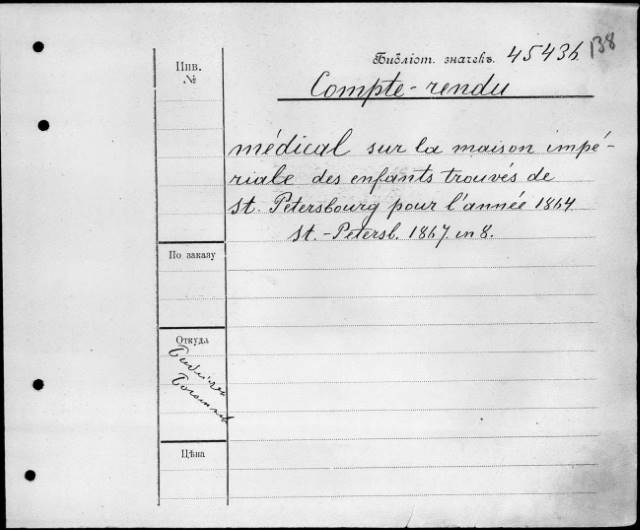 Библіот. значекъ. 45436 138
Инв.
№
Compte-rendu
médical sur la maison impé-
riale des enfants trouvés de
St. Petersbourg pour l'année 1864
St.-Petersb. 1867. in 8.
По заказу
Откуда
Цѣна